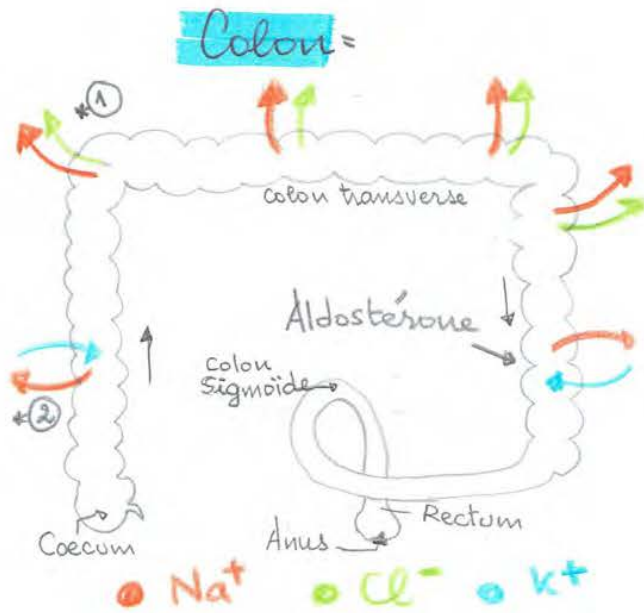 Colon =
*①
colon transverse
Aldostérone
colon
Sigmoïde
*②
Coecum
Rectum
Anus
Na⁺ Cl⁻ K⁺